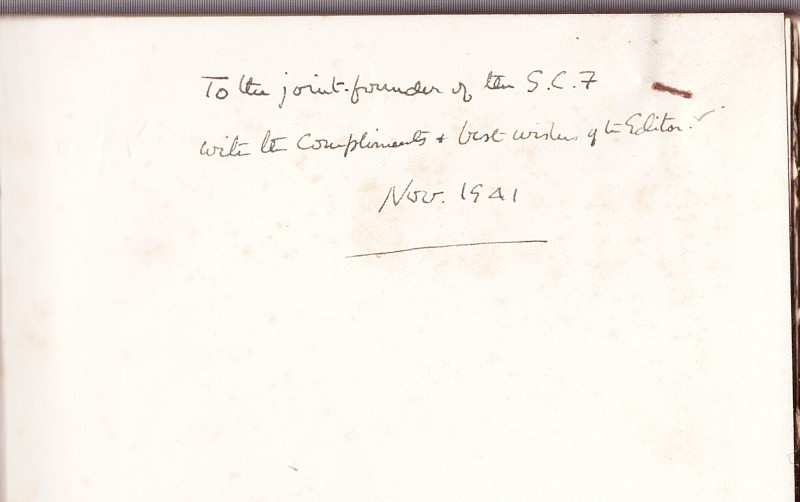 To the joint-founder of the S.C.F
with the Compliments + best wishes of the Editor.
Nov. 1941